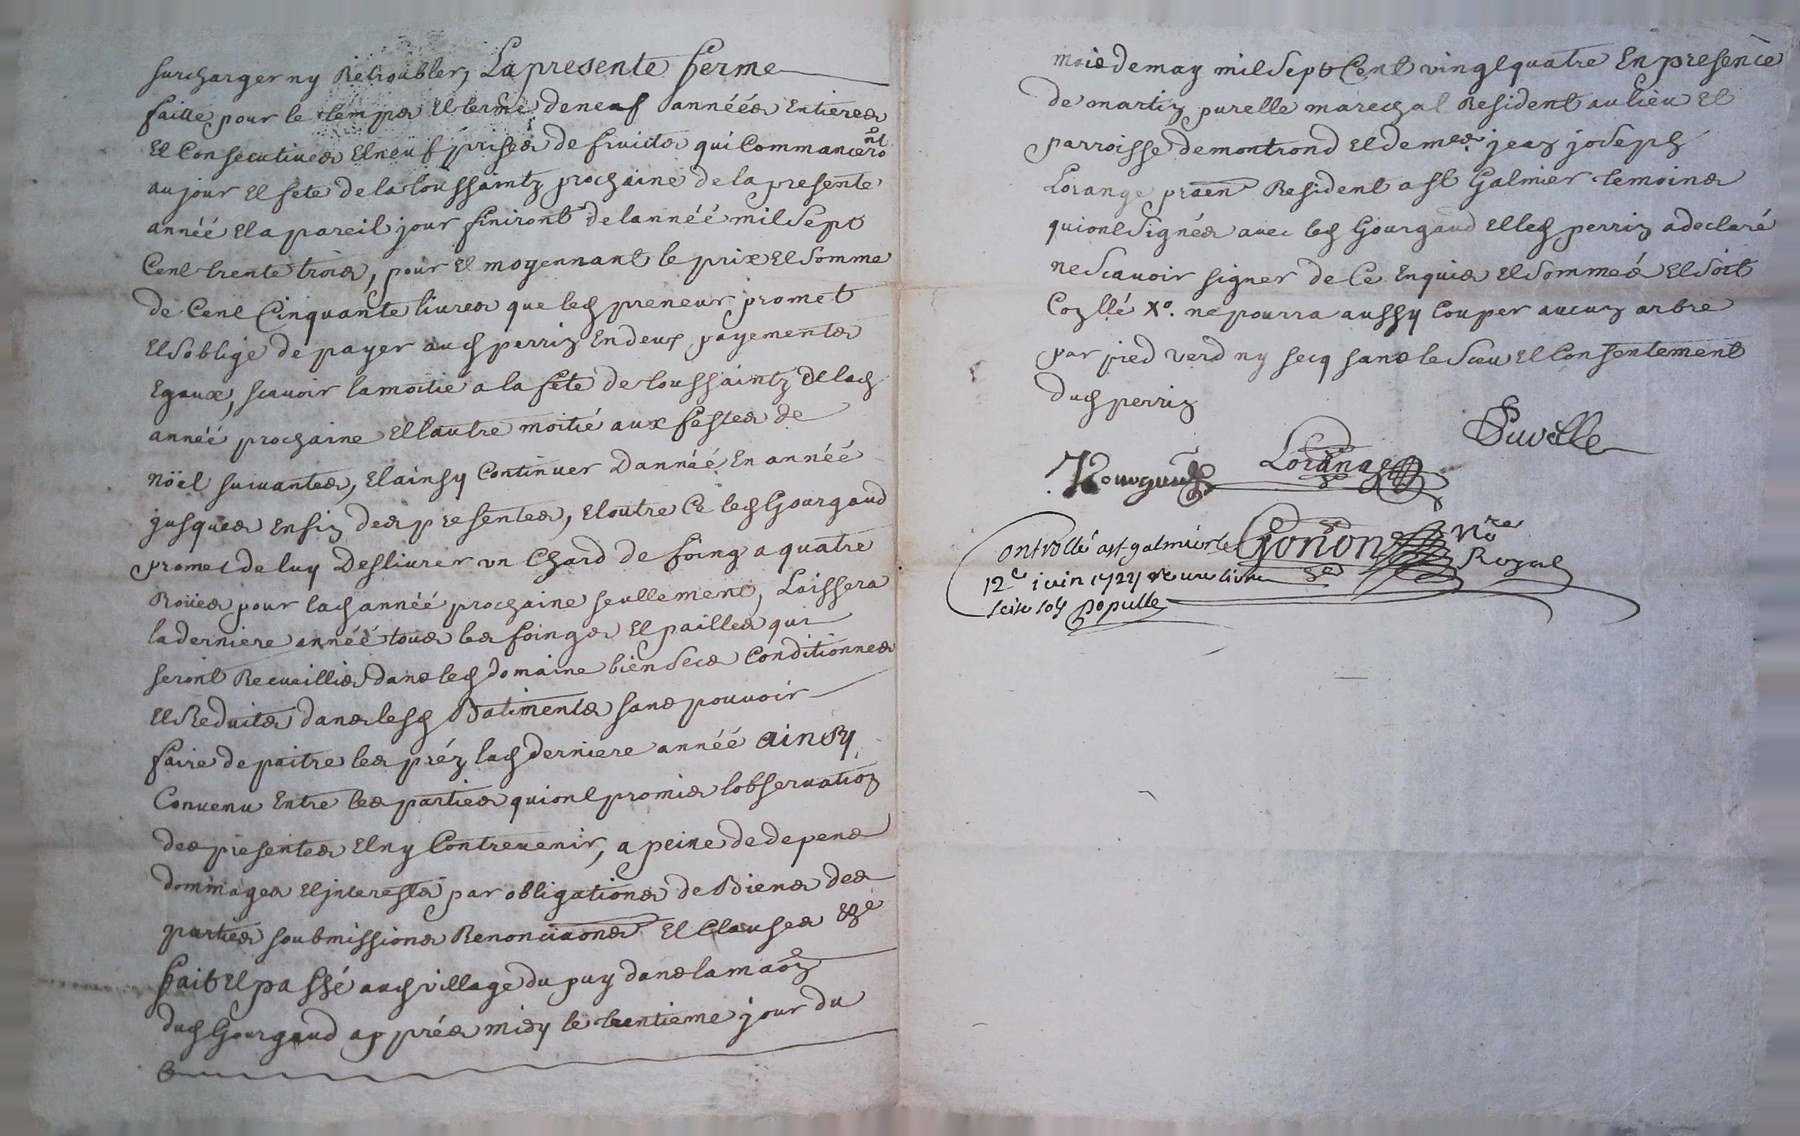 surcharger ny Retroubler, La presente ferme
faitte pour le temps et terme de neuf années Entieres
Et Consecutives et neuf prises de fruicts qui Commanceront
au jour et fete de la toussaintz prochaine de la presente
année et a pareil jour finiront de lannéé mil Sept
Cent trente trois, pour et moyennant le prix et Somme
de Cent Cinquante livres que led preneur promet
et soblige de payer aud perrin En deux payements
Egaux, scavoir la moitié a la fete de toussaintz de lad
année prochaine et lautre moitié aux festes de
nöel suivantes, et ainsy Continuer dannéé En annéé
jusques en fin des presentes, et outre Ce led Gourgaud
promet de luy deslivrer un Chard de foing a quatre
Roües pour lad année prochaine seullement, Laissera
la derniere annéé tous les foings et pailles qui
seront Recueillis dans led domaine bien Secs Conditionnes
et Reduits dans lesd Batiments sans pouvoir
faire depaitre les préz lad derniere annéé ainsy
Convenu Entre les parties qui ont promis lobservation
des presentes et ny Contrevenir, a peine de depens
dommages et jnterests par obligations de Biens des
parties soubmissions Renonciaons et Clauses &c
fait et passé aud village du puy dans la maon
dud Gourgaud appres midy le trentieme jour du
mois de may mil Sept Cent vingt quatre En presence
de martin purelle marechal Resident au lieu et
parroisse de montrond et de me jean joseph
Lorange praen Resident a st Galmier temoins
qui ont Signés avec led Gourgaud et led perrin a declaré
ne Scavoir signer de Ce Enquis et Sommé et Soit
Conllé Xo. ne pourra aussy Couper aucun arbre
par pied verd ny secq sans le Sceu et Consentement
dud perrin
Puvelle
Gourgaud Lorange
Gonon Nre
Royal
Controllé a st galmier le
12e juin 1724 Receu une livre
seise sols Populle